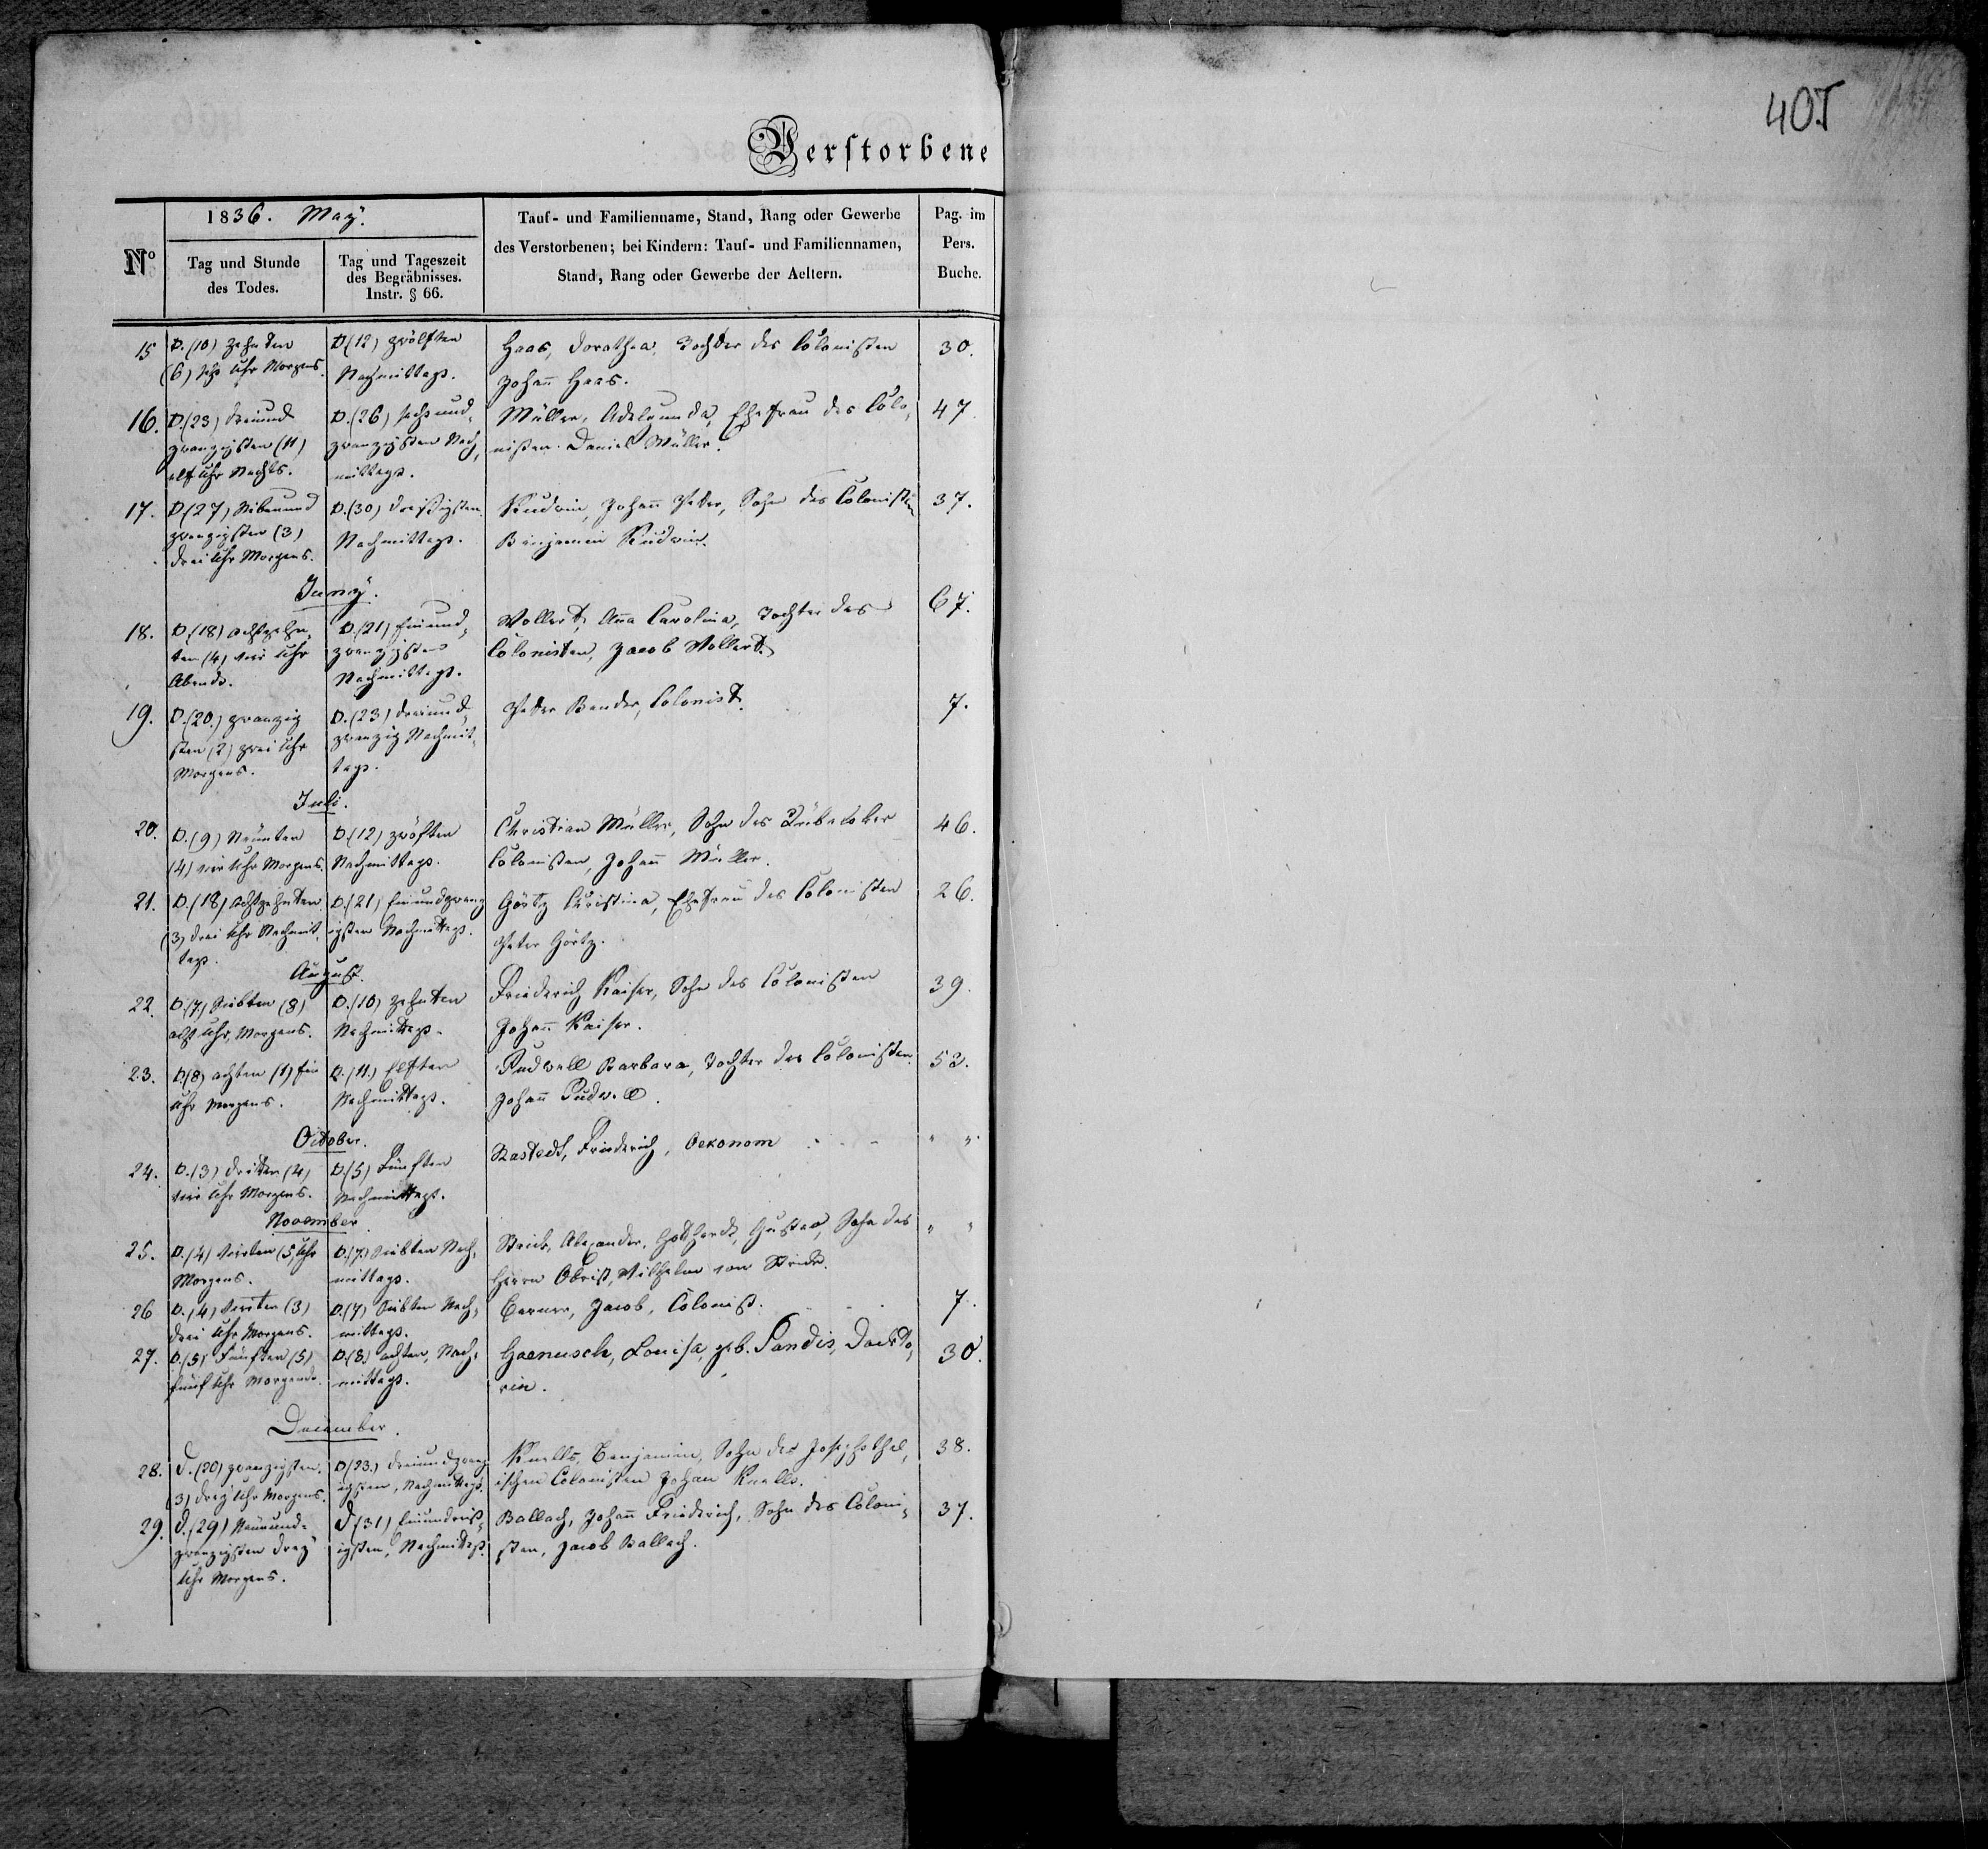 405
Verstorbene
1836. May.
No
Tag und Stunde
des Todes.
Tag und Tageszeit
des Begräbnisses.
Instr. § 66.
Tauf- und Familienname, Stand, Rang oder Gewerbe
des Verstorbenen; bei Kindern: Tauf- und Familiennamen,
Stand, Rang oder Gewerbe der Aeltern.
Pag. im
Pers.
Buche.
15 D. (10) zehnten D. (12) zwölften Haas, Dorothea, Tochter des Colonisten 30.
(6) sechs Uhr Morgens. Nachmittags. Johann Haas.
16. D. (23) dreiund D. (26) sechsund- Müller, Adelgunda, Ehefrau des Colo- 47.
zwanzigsten (11) zwanzigsten Nach- nisten Daniel Müller.
elf Uhr Nachts. mittags.
17. D (27) Siebenund D. (30) dreißigsten Johann Peter, Sohn des Colonisten 37.
zwanzigsten (3) Nachmittags. Benjamin
drei Uhr Morgens.
Juny.
18. D. (18) achtzehn- D. (21) Einund- Vollert, Anna Carolina, Tochter des 67.
ten (4) vier Uhr zwanzigsten Colonisten, Jacob Vollert.
Abends. Nachmittags.
19. D. (20.) zwanzig D. (23) dreiund- Peter Bender, Colonist. 7.
sten (2) zwei Uhr zwanzig Nachmit-
Morgens. tags.
Juli.
20. D. (9) Neunten D. (12) zwölften Christian Müller, Sohn des 46.
(4) vier Uhr Morgens. Nachmittags. Colonisten, Johann Müller.
21. D. (18) achtzehnten D. (21) Einundzwanz Görtz Christina, Ehefrau des Colonisten 26.
(3) drei Uhr Nachmit- igsten Nachmittags. Peter Görtz.
tags.
August.
22. D. (7) Siebten (8) D. (10) zehnten Friederich Kaiser, Sohn des Colonisten 39.
acht Uhr, Morgens. Nachmittags. Johann Kaiser.
23. D. (8) achten (1) Ein D. (11.) Elften Pudwell Barbara, Tochter des Colonisten 52.
Uhr Morgens. Nachmittags. Johann Pudwell.
October.
24. D. (3) dritten (4) D. (5) Fünften Rastedt, Friederich, Oekonom " "
vier Uhr Morgens. Nachmittags.
November
25. D. (4) Vierten (5) Uhr D. (7.) Siebten Nach- Alexander, Gotthardt, Gustav, Sohn des " "
Morgens. mittags. Herrn Obrist, Wilhelm von
26 D. (4) Vierten (3) D. (7) Siebten Nach- Jacob, Colonist. 7.
drei Uhr Morgens. mittags.
27. D. (5) Fünften (5) D. (8) achten, Nach- Haenusch, Louisa, geb. Sandis, Docto- 30.
fünf Uhr Morgends. mittags. rin.
December.
28. d. (20) zwanzigsten D (23.) dreiundzwanz Knells, Benjamin, Sohn des Josephsthal- 38.
(3) drey Uhr Morgens. igsten, Nachmittags. ischen Colonisten Johann Knells.
29. d. (29) Neunund- d (31) Einunddreiß- Ballach, Johann Friederich, Sohn des Coloni- 37.
zwanzigsten drey igsten, Nachmittags. sten, Jacob Ballach.
Uhr Morgens.